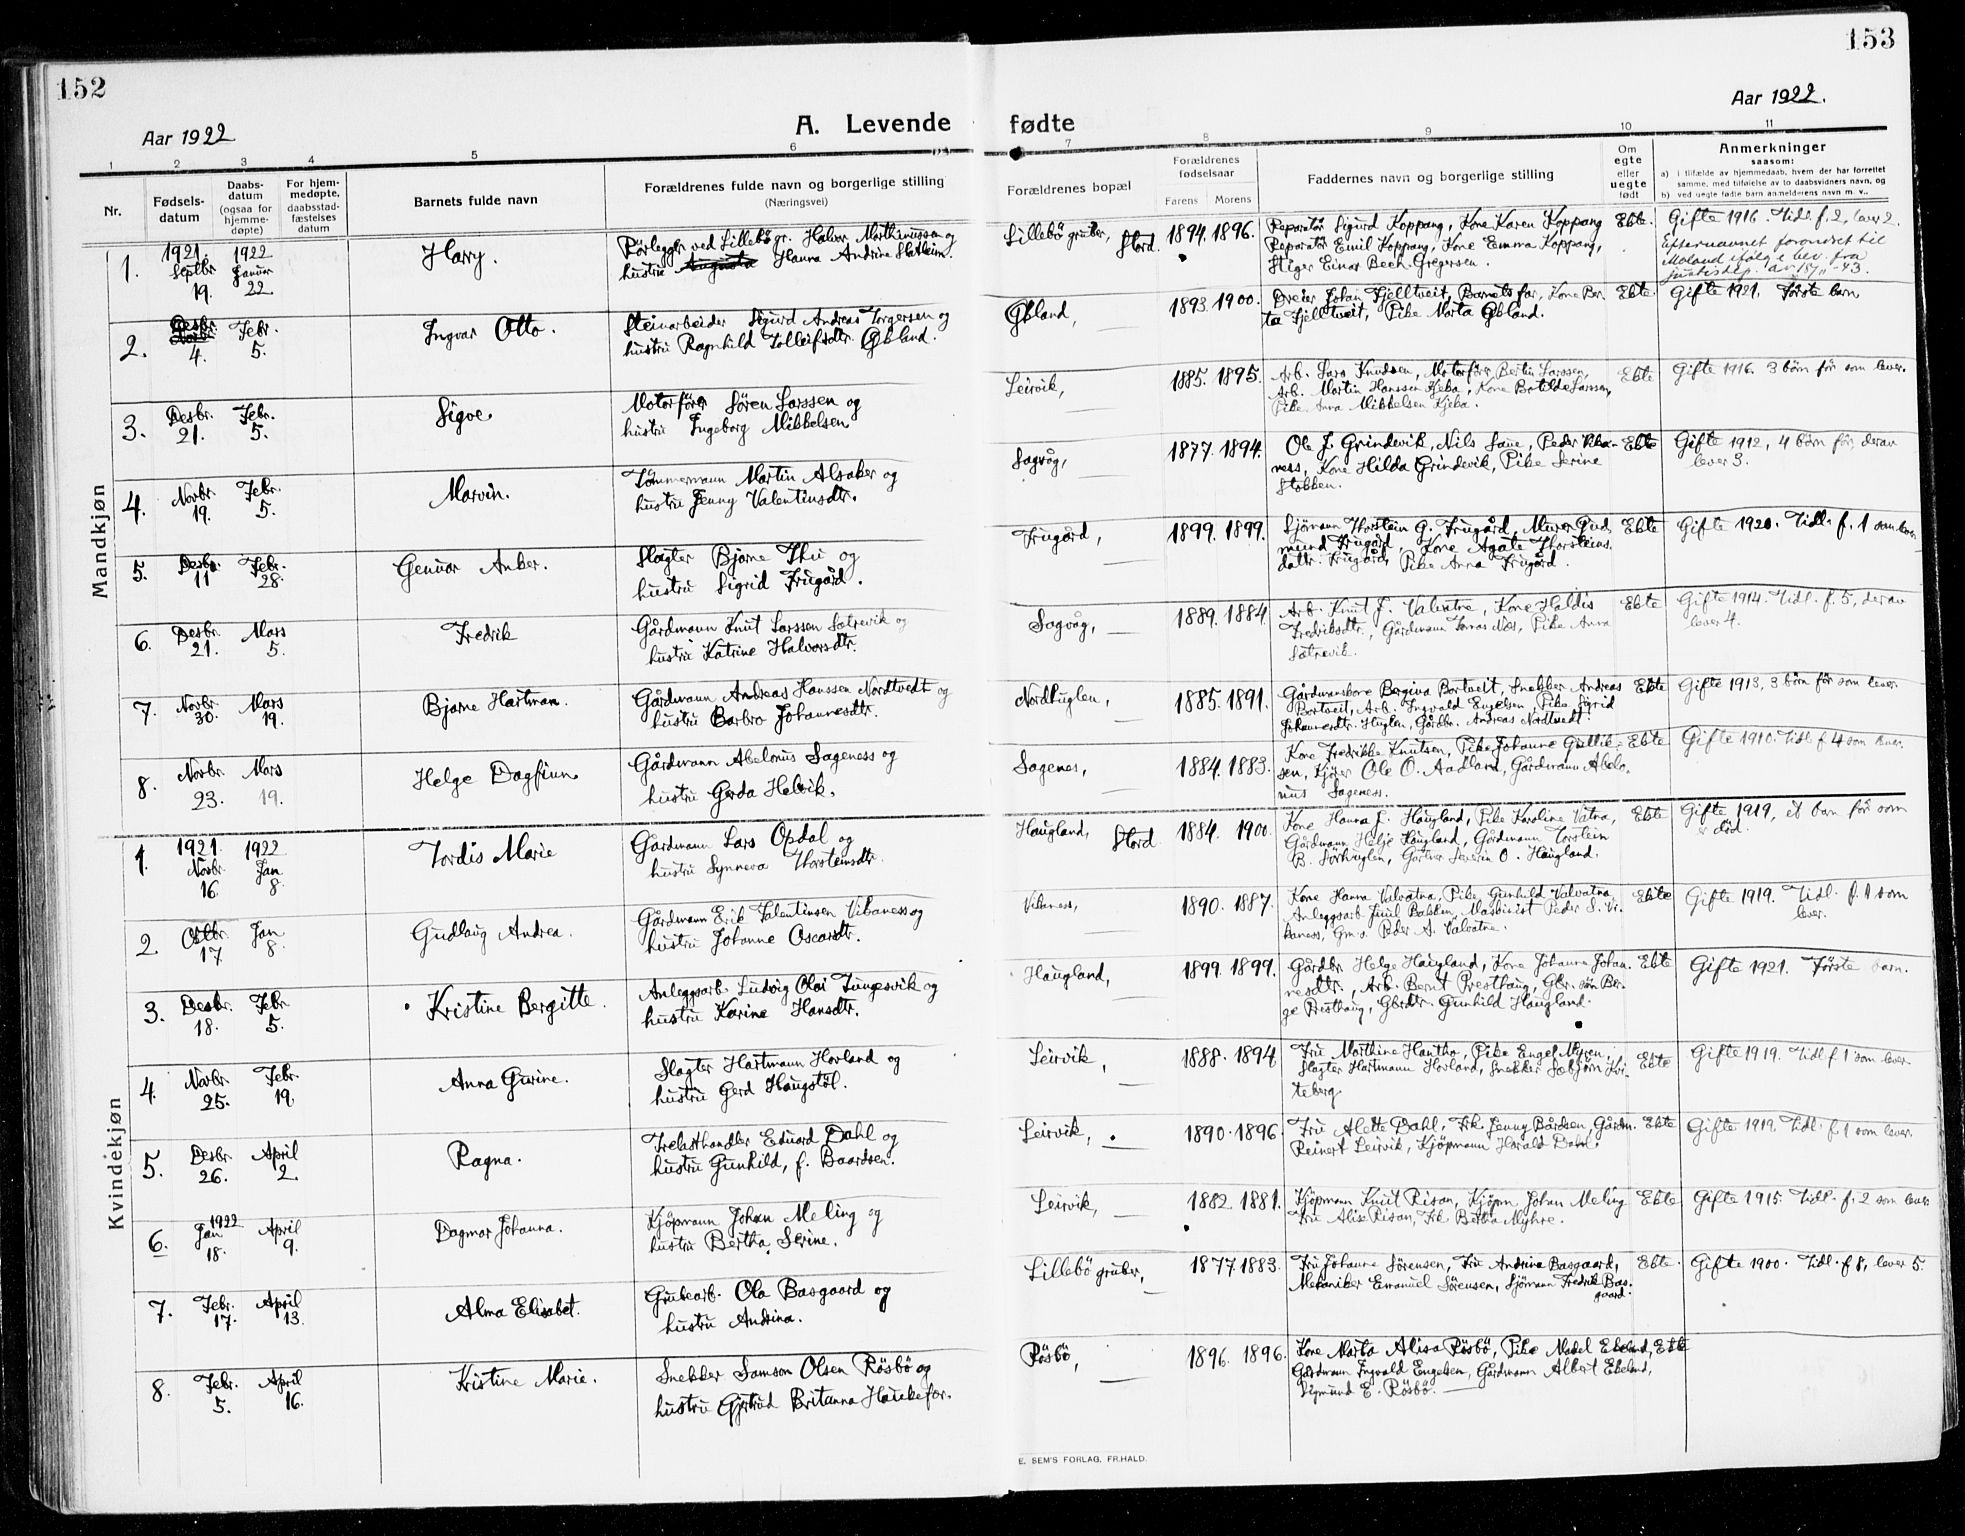 152
Aar 1922
A. Levende
1
2
3
4
5
6
Nr.
Fødsels-
datum
Daabs-
datum
(ogsaa for
hjemme-
døpte)
For hjem-
medøpte,
daabsstad-
fæstelses
datum
Barnets fulde navn
Forældrenes fulde navn og borgerlige stilling
(Næringsvei)
Mandkjøn
1.
1921.
Septbr.
19.
1922
Januar
22.
Harry.
Rörlegger ved Lillebö gr. Halvor Marthinussen og
hustru Augusta Hanna Andrine Slatheim.
2.
Desbr.
Novbr.
4.
Febr.
5.
Ingvar Otto.
Steinarbeider Sigurd Andreas Torgersen og
hustru Ragnhild Tolleifsdtr. Øbland.
3.
Desbr.
21.
Febr.
5.
Sigve
Motorfører Sören Larssen og
hustru Ingeborg Mikkelsen
4.
Novbr.
19.
Febr.
5.
Marvin.
Tömmermann Martin Alsaker og
hustru Jenny Valentinsdtr.
5.
Desbr.
11
Febr.
28.
Gunnar Anker.
Slagter Bjarne Thu og
hustru Sigrid Frugård.
6.
Desbr.
21.
Mars
5.
Fredrik
Gårdmann Knut Larssen Sætrevik og
hustru Katrine Halvorsdtr.
7.
Novbr.
30.
Mars
19.
Bjarne Hartman.
Gårdmann Andreas Hanssen Nordtvedt og
hustru Barbro Johannesdtr.
8.
Novbr.
23.
Mars
19.
Helge Dagfinn
Gårdmann Abelonus Sageness og
hustru Gerda Helvik.
Kvindekjøn
1.
1921.
Novbr.
16.
1922
Jan
8.
Tordis Marie
Gårdmann Lars Opdal og
hustru Synneva Thorsteinsdtr.
2.
Oktbr.
17
Jan
8.
Gudlaug Andrea.
Gårdmann Erik Valentinsen Vikaness og
hustru Johanne Oscarsdtr.
3.
Desbr.
18.
Febr.
5.
Kristine Bergitte.
Anleggsarb. Ludvig Olai Tungesvik og
hustru Karine Hansdtr.
4.
Novbr.
25.
Febr.
19.
Anna Gurine.
Slagter Hartmann Hovland og
hustru Gerd Haugstøl.
5.
Desbr.
26.
April
2.
Ragna.
Trelasthandler Eduard Dahl og
hustru Gunhild, f. Baardsen.
6.
1922
Jan
18.
April
9.
Dagmar Johanna.
Kjöpmann Johan Meling og
hustru Bertha Serine.
7.
Febr.
17.
April
13.
Alma Elisabet.
Grubearb. Ola Basgaard og
hustru Andrina.
8.
Febr.
5.
April
16.
Kristine Marie.
Snekker Samson Olsen Røsbø og
hustru Gjertrud Britanna Haukefær.
153
Aar 1922.
fødte
7
8
9
10
11
Forældrenes bopæl
Forældrenes
fødselsaar
Farens
Morens
Faddernes navn og borgerlige stilling
Om
egte
eller
uegte
født
Anmerkninger
saasom:
a) i tilfælde av hjemmedaab, hvem der har forrettet
samme, med tilføielse av to daabsvidners navn, og
b) ved uegte fødte barn anmelderens navn m. v.,
Lillebö gruber, Stord.
1894. 1896.
Reparatör Sigurd Koppang, Kone Karen Koppang
Reparatör Emil Koppang, Kone Emma Koppang,
Stiger Einar Bech-Gregersen.
Ekte.
Gifte 1916. Tidl. f. 2, lever 2.
Efternavnet forandret til
Moland ifølge bev. fra
justisdep. av 18/11-43.
Øbland,
1893. 1900.
Dreier Johan Fjelltveit, Barnets far, Kone Ber-
ta Fjelltveit, Pike Marta Øbland.
Ekte.
Gifte 1921. Første barn
Leirvik,
1885. 1895.
Arb. Lars Knudsen, Motorfører Bertin Larssen,
Arb. Martin Hanssen Kjeka, Kone Botilde Larssen,
Pike Anna Mikkelsen Kjeka.
Ekte
Gifte 1916. 3 börn för som lever.
Sagvåg,
1877. 1894.
Ole J. Grindevik, Nils Saue, Peder Vika-
ness, Kone Hilda Grindevik, Pike Serine
Stokken.
Ekte
Gifte 1912, 4 börn för, derav
lever 3.
Frugård,
1899. 1899.
Sjömann Thorstein G. Frugård, Murer Gud-
mund Frugård, Kone Agate Thorsteins-
dattr. Frugård, Pike Anna Frugård.
Ekte
Gifte 1920. Tidl. f. 1 som lever.
Sagvåg,
1889. 1884.
Arb. Knut J. Valvatne, Kone Haldis
Fredriksdtr., Gårdmann Tomas Næs, Pike Anna
Sætrevik.
Ekte
Gifte 1914. Tidl. f. 5, derav
lever 4.
Nordhuglen,
1885. 1891.
Gårdmanskone Bergina Bortveit, Snekker Andreas
Bortveit, Arb. Ingvald Engelsen, Pike Sigrid
Johannesdtr. Huglen, Gårdbr. Andreas Nordtvedt.
Ekte
Gifte 1913, 3 börn för som lever.
Sagenes,
1884. 1883.
Kone Fredrikke Knutsen, Pike Johanne Gullik-
sen, Kjører Ole O. Aadland, Gårdmann Abelo-
nus Sageness.
Ekte
Gifte 1910. Tidl. f. 4 som lever.
Haugland, Stord
1884. 1900.
Kone Hanna J. Haugland, Pike Karoline Vatna,
Gårdmann Helje Haugland, Gårdmann Torstein
B. Sörhuglen, Gartner Severin O. Haugland.
Ekte
Gifte 1919, et barn för som
er död.
Vikaness,
1890. 1887.
Kone Hanna Valvatna, Pike Gunhild Valvatna
Anleggsarb. Juul Bakken, Maskinist Peder S. Vi-
kaness, Gm.s. Peder A. Valvatne.
Ekte
Gifte 1919. Tidl. f. 1 som
lever.
Haugland,
1899. 1899.
Gårdbr. Helge Haugland, Kone Johanne Johan-
nesdtr., Arb. Bernt Presthaug, Gbr. sön Ber-
ge Presthaug, Gbrdtr. Gunhild Haugland.
Ekte
Gifte 1921. Første barn.
Leirvik,
1888. 1894.
Fru Marthine Hantho, Pike Engel Myren,
Slagter Hartmann Hovland, Snekker Sæbjørn Kvi-
teberg
Ekte
Gifte 1919. Tidl f 1 som lever.
Leirvik,
1890. 1896.
Fru Alette Dahl, Frk Jenny Bårdsen, Gårdm.
Reinert Leirvik, Kjöpmann Harald Dahl
Ekte
Gifte 1919. Tidl. f. 1 som lever.
Leirvik,
1882. 1881.
Kjöpmann Knut Risan, Kjöpm. Johan Meling
Fru Alise Risan, Frk Bertha Myhre.
Ekte
Gifte 1915. Tidl. f. 2 som lever.
Lillebö gruber,
1877. 1883.
Fru Johanne Sörensen, Fru Andrina Basgaard,
Mekaniker Emanuel Sörensen, Sjömann Fredrik Bas-
gaard.
Ekte.
Gifte 1900. Tidl. f 8, lever 5.
Røsbø,
1896. 1896.
Kone Marta Alisa Røsbö, Pike Madel Ekeland,
Gårdmann Ingvald Engelsen, Gårdmann Albert Ekeland,
Sigmund E. Røsbö.
Ekte
E. SEM'S FORLAG, FR.HALD.